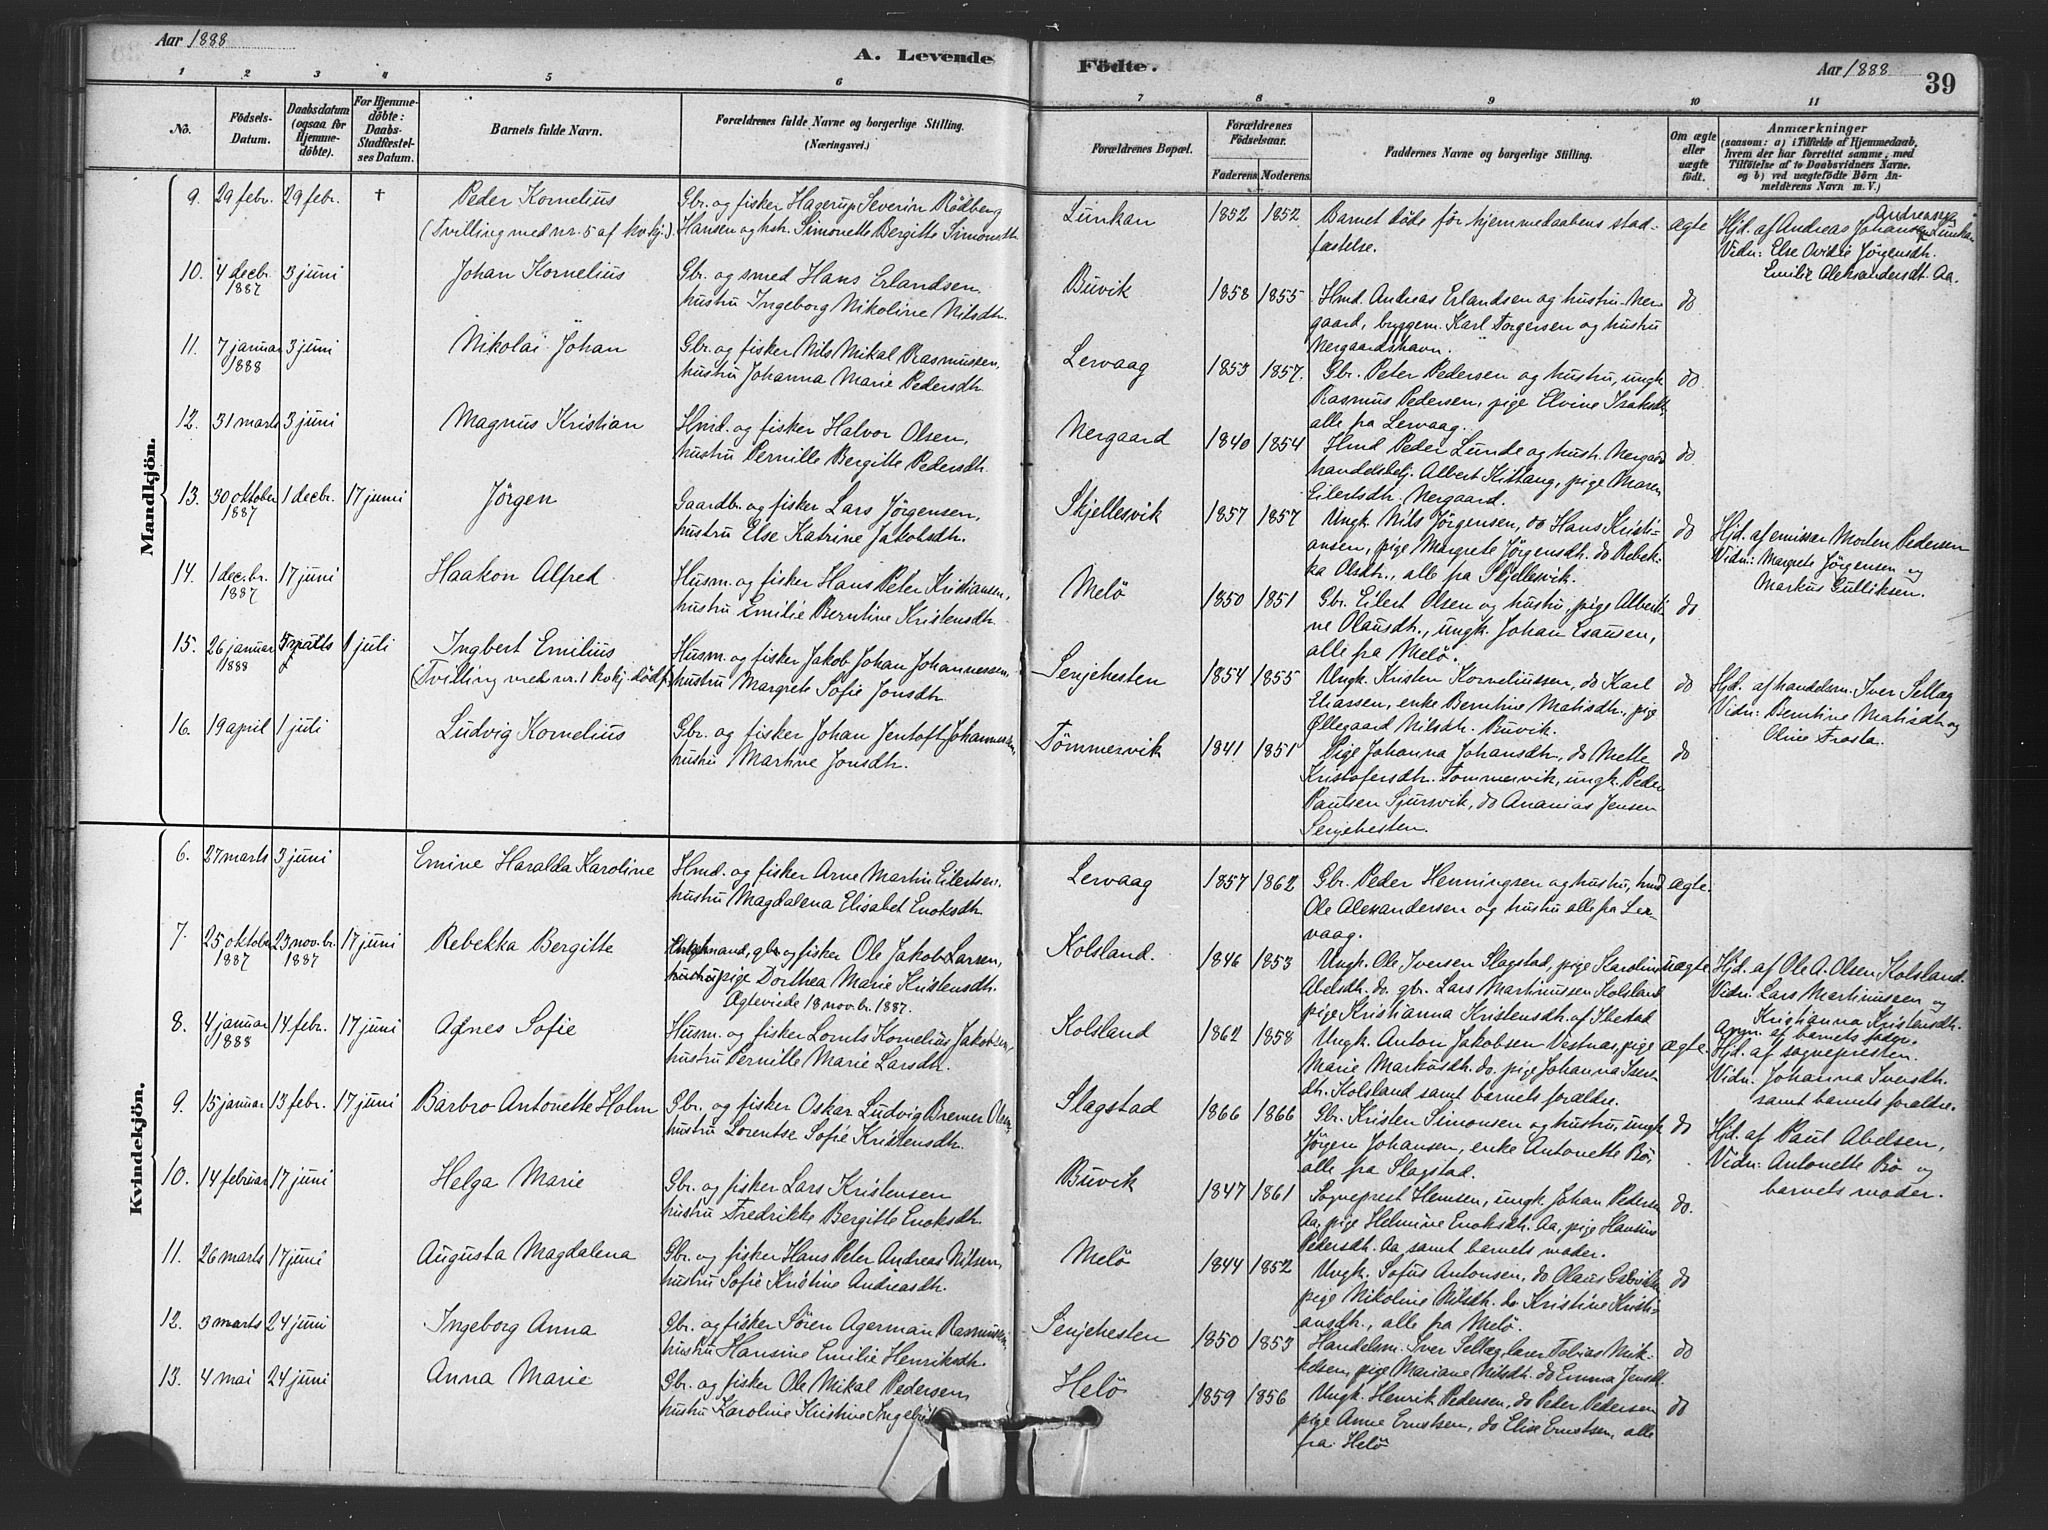 Aar 1888
A. Levende Födte.
Aar 1888
39
1 2 3 4 5 6 7 8 9 10 11
No.
Födsels-Datum.
Daabsdatum (ogsaa for Hjemmedöbte).
For Hjemmedöbte: Daabs-Stadfæstelses Datum.
Barnets fulde Navn.
Forældrenes fulde Navne og borgerlige Stilling.
(Næringsvei.)
Forældrenes Bopæl.
Forældrenes Födselsaar.
Faderens. Moderens.
Faddernes Navne og borgerlige Stilling.
Om ægte eller uægte födt.
Anmærkninger
(saasom: a) i Tilfælde af Hjemmedaab, hvem der har forrettet samme, med Tilföielse af to Daabsvidners Navne. og b) ved uægtefödte Börn Anmelderens Navn m. V.)
Mandkjön.
9. 29 febr. 29 febr. † Peder Kornelius
(Tvilling med nr. 5 af kvkj.).
Gbr. og fisker Hagerup Severin Rödberg
Hansen og hstr. Simonette Bergitte Simonsdtr.
Lunkan 1852 1852
Barnet döde för hjemmedaabens stad-
fæstelse.
ægte
Hjd. af Andreas Johan Andreassen Lunkan
Vidn: Else Ovidie Jörgensdtr.
Emilie Aleksandersdt. Aa.
10. 4 decbr. 1887 3 juni Johan Kornelius
Gbr. og smed Hans Erlandsen,
hustru Ingeborg Nikoline Nilsdtr.
Buvik 1858 1855
Hmd. Andreas Erlandsen og hustru Ner-
gaard, byggem. Karl Torgersen og hustru
Nergaardshavn.
do
11. 7 januar 1888 3 juni Nikolai Johan
Gbr. og fisker Nils Mikal Rasmussen,
hustru Johanna Marie Pedersdtr.
Lervaag 1853 1857.
Gbr. Peter Pedersen og hustru, ungk.
Rasmus Pedersen, pige Elvine Isaksdt.
alle fra Lervaag.
do
12. 31 marts 3 juni Magnus Kristian
Hmd. og fisker Halvor Olsen,
hustru Pernille Bergitte Pedersdtr.
Nergaard 1840 1854
Hmd. Peder Lunde og hustr. Nergaard
handelsbetj. Albert Kittang, pige Maren
Eilertsdtr. Nergaard.
do
13. 30 oktober 1887 1 decbr. 17 juni Jörgen
Gaardb. og fisker Lars Jörgensen,
hustru Else Katrine Jakobsdtr.
Skjellesvik 1857 1857
Ungk. Nils Jörgensen, do Hans Kristi-
ansen, pige Margrete Jörgensdtr. do Rebek-
ka Olsdtr., alle fra Skjellesvik.
do
Hjd. af emissær Morten Pedersen
Vidn: Margrete Jörgensen og
Markus Gulliksen.
14. 1 decbr. 1887 17 juni Haakon Alfred
Husm. og fisker Hans Peter Kristiansen,
hustru Emilie Berntine Kristensdtr.
Melö 1850 1851
Gbr. Eilert Olsen og hustru, pige Alberti-
ne Olausdtr., ungk. Johan Esausen,
alle fra Melö.
do
15. 26 januar 1888 1 juli Ingbert Emilius
(Tvilling med nr. 1 kvkj. dödf.)
Husm. og fisker Jakob Johan Johannessen,
hustru Margrete Sofie Jonsdtr.
Senjehesten 1854 1855
Ungk. Kristen Korneliussen, do Karl
Eliassen, enke Berntine Matisdtr., pige
Öllegaard Nilsdtr. Buvik.
do
Hjd. af handelsm. Iver Sellæg
Vidn: Berntine Matisdtr. og
Oline Frosta.
16. 19 april 1 juli Ludvig Kornelius
Gbr. og fisker Johan Jentoft Johannessen,
hustru Martine Jonsdtr.
Tömmervik 1841 1851
Pige Johanna Johansdtr., do Mette
Kristofersdtr. Tömmervik, ungk. Peder
Paulsen Sjursvik, do Ananias Jensen
Senjehesten.
do
Kvindekjön.
6. 27 marts 3 juni Emine Haralda Karoline
Hmd. og fisker Arne Martin Eilertsen,
hustru Magdalena Elisabet Enoksdtr.
Lervaag 1857 1862
Gbr. Peder Henningsen og hustru, hmd
Ole Alexandersen og hustru alle fra Ler-
vaag.
ægte.
7. 25 oktober 1887 23 novbr. 1887 17 juni Rebekka Bergitte
Enkemand, gbr. og fisker Ole Jakob Larsen,
pige Dorthea Marie Kristensdtr.
Ægteviede 18 novbr. 1887.
Kolsland. 1846 1853
Ungk. Ole Iversen Slagstad, pige Karoline
Abelsdtr. do. gbr. Lars Martinussen Kolsland
pige Kristianna Kristensdtr. af Ibestad
uægte
Hjd. af Ole A. Olsen Kolsland.
Vidn: Lars Martinussen og
Kristianna Kristensdtr.
Anm. af barnets fader.
8. 4 januar 1888 14 febr. 17 juni Agnes Sofie
Husm. og fisker Lornts Kornelius Jakobsen,
hustru Pernille Marie Larsdtr.
Kolsland 1862 1858
Ungk. Anton Jakobsen Vestnæs, pige
Marie Markusdtr. do. pige Johanna Ivers-
dtr. Kolsland samt barnets forældre.
ægte.
Hjd. af sognepresten.
Vidn: Johanna Iversdtr.
samt barnets forældre.
9. 15 januar 13 febr. 17 juni Barbro Antonette Holm
Gbr. og fisker Oskar Ludvig Bremer Olsen,
hustru Lorentse Sofie Kristensdtr.
Slagstad 1866 1866
Gbr. Kristen Simonsen og hustru, ungk.
Jörgen Johansen, enke Antonette Bö,
alle fra Slagstad.
do
Hjd. af Paul Abelsen,
Vidn: Antonette Bö og
barnets moder.
10. 14 februar 17 juni Helga Marie
Gbr. og fisker Lars Kristensen
hustru Fredrikke Bergitte Enoksdtr.
Buvik 1847 1861
Sogneprest Hemsen, ungk. Johan Pedersen
Aa, pige Helmine Enoksdtr. Aa, pige Hansine
Pedersdtr. Aa samt barnets moder.
do.
11. 26 marts 17 juni Augusta Magdalena
Gbr. og fisker Hans Peter Andreas Nilsen,
hustru Sofie Kristine Andreasdtr.
Melö 1844 1852
Ungk. Sofus Antonsen, do Olaus Gabrielsen
pige Nikoline Nilsdtr. do Kristine Kristi-
ansdtr., alle fra Melö.
do
12. 3 marts 24 juni Ingeborg Anna
Gbr. og fisker Sören Agerman Rasmussen,
hustru Hansine Emilie Henriksdtr.
Senjehesten 1850 1853
Handelsm. Iver Sellæg, lærer Tobias Mik-
kelsen, pige Mariane Nilsdtr. do Emma Jensdt.
do
13. 4 mai 24 juni Anna Marie
Gbr. og fisker Ole Mikal Pedersen,
hustru Karoline Kristine
Helö 1859 1856
Ungk. Henrik Pedersen, do Peter Pedersen
pige Anne Ernstsen, do Elise Ernstsen, alle
fra Helö
do